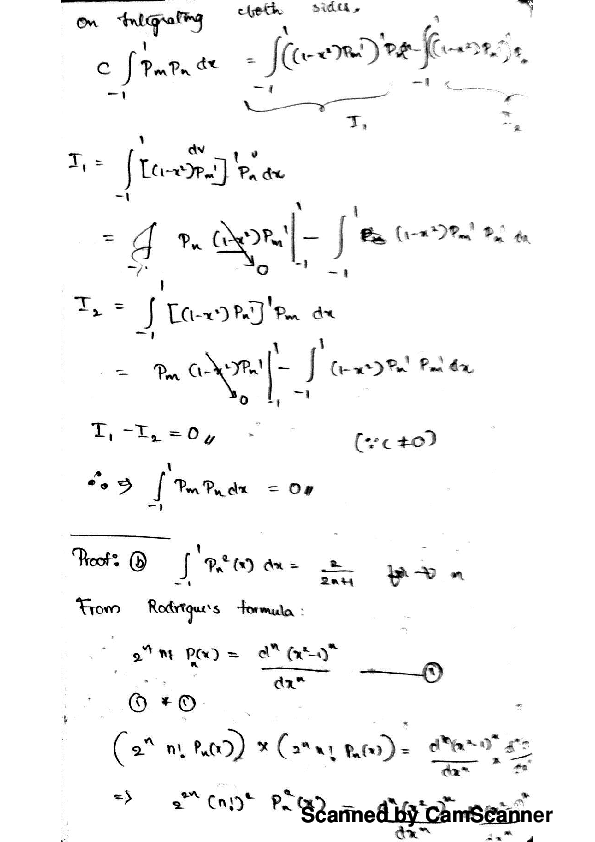 on Integrating both sides,
C ∫_{-1}^{1} Pm Pn dx = ∫_{-1}^{1} ((1-x²)Pm')' Pn - ∫_{-1}^{1} ((1-x²)Pn')'
I₁ I₂
I₁ = ∫_{-1}^{1} [(1-x²)Pm']' Pn dx
dv u
= Pn (1-x²)Pm' |_{-1}^{1} - ∫_{-1}^{1} (1-x²) Pm' Pn' dx
0
I₂ = ∫_{-1}^{1} [(1-x²)Pn']' Pm dx
= Pm (1-x²)Pn' |_{-1}^{1} - ∫_{-1}^{1} (1-x²) Pn' Pm' dx
0
I₁ - I₂ = 0 (∵ C ≠ 0)
∴ ⇒ ∫_{-1}^{1} Pm Pn dx = 0
Proof: ⓑ ∫_{-1}^{1} Pn²(x) dx = 2/(2n+1) n
From Rodrigue's formula:
2ⁿ n! Pn(x) = dⁿ(x²-1)ⁿ / dxⁿ — ①
① * ①
(2ⁿ n! Pn(x)) × (2ⁿ n! Pn(x)) = dⁿ(x²-1)ⁿ / dxⁿ ×
⇒ 2²ⁿ (n!)² Pn²(x) = dⁿ(x²-1)ⁿ / dxⁿ
Scanned by CamScanner